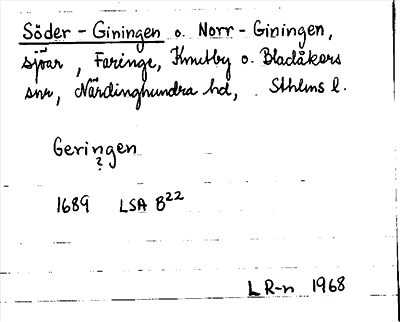 Söder-Giningen o. Norr-Giningen,
sjöar, Faringe, Knutby o. Bladåkers
snr, Närdinghundra hd, Sthlms l.
Geringen
?
1689 LSA B22
L R-n 1968